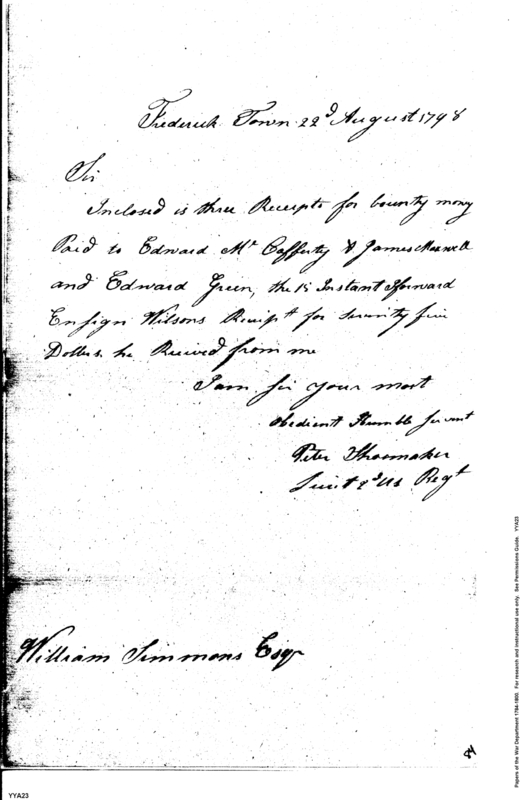 Frederick Town 22d August 1798
Sir
Inclosed is three Receipts for bounty mony
Paid to Edward Mc Cafferty & James Maxwell
and Edward Green, the 15 Instant I forward
Ensign Wilsons Receipt for seventy five
Dollers he Recived from me
I am sir your most
obedient Humble servant
Peter Shoemaker
Lieut 2d US Regt
William Simmons Esqr
Papers of the War Department 1784-1800. For research and instructional use only. See Permissions Guide. YYA23
YYA23